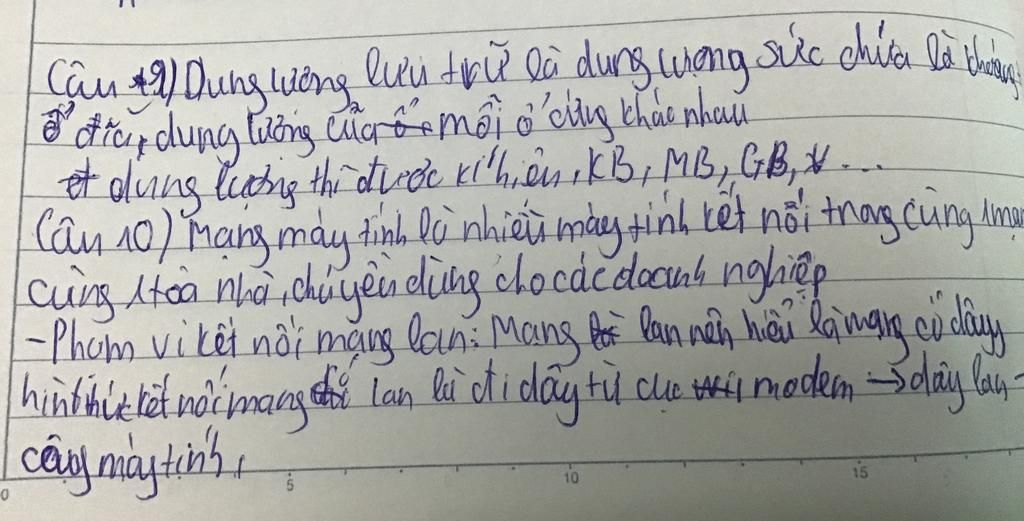 Câu 9) Dung lượng lưu trữ là dung lượng sức chứa là khoảng
ổ đĩa, dung lượng của mỗi ổ cứng khác nhau
dung lượng thì được kí hiệu, KB, MB, GB, ...
Câu 10) Mạng máy tính là nhiều máy tính kết nối trong cùng 1 mạng
cùng 1 toà nhà, chuyên dùng cho các doanh nghiệp
-Phạm vi kết nối mạng lan: Mạng lan nên hiểu là mạng có dây
hình thức kết nối mạng lan là đi dây từ cục modem → dây lan -
cổng máy tính,
0 5 10 15